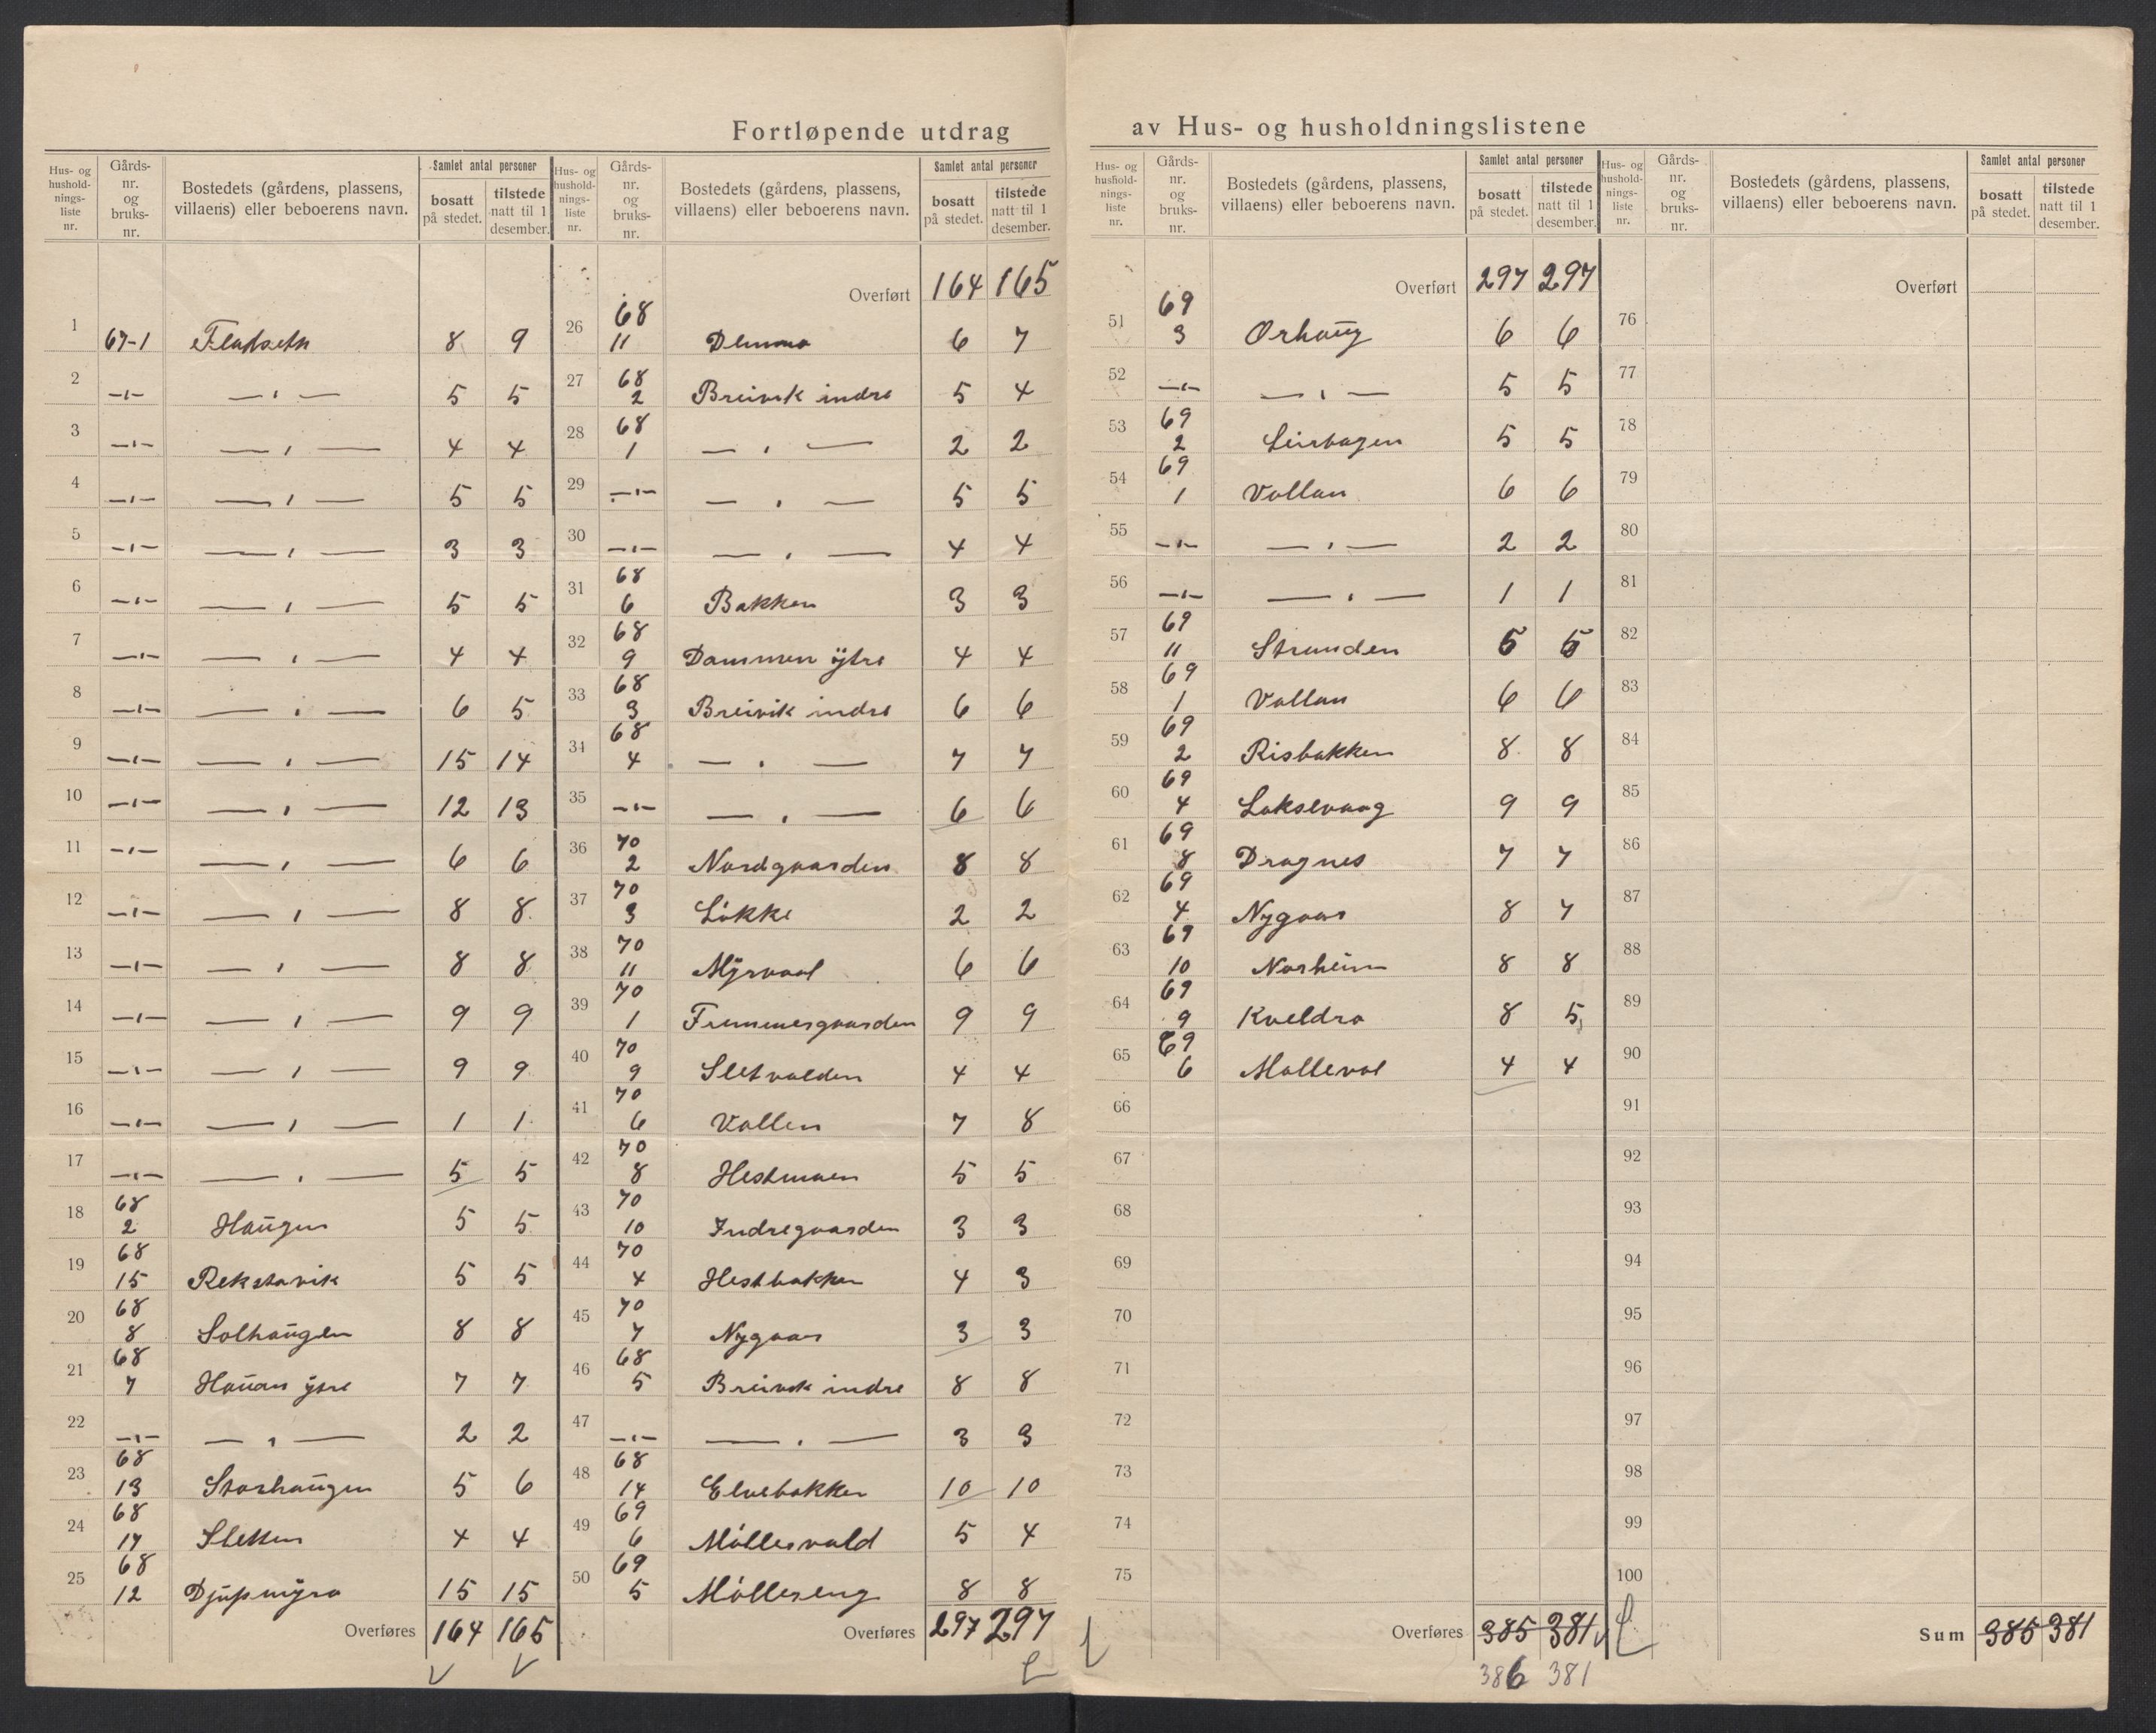 Fortløpende utdrag av Hus- og husholdningslistene
Hus- og hushold-nings-liste nr. | Gårds-nr. og bruks-nr. | Bostedets (gårdens, plassens, villaens) eller beboerens navn. | Samlet antal personer | bosatt på stedet. | tilstede natt til 1 desember.
1 67-1 Fladseth 8 9
2 —"— —"— 5 5
3 —"— —"— 4 4
4 —"— —"— 5 5
5 —"— —"— 3 3
6 —"— —"— 5 5
7 —"— —"— 4 4
8 —"— —"— 6 5
9 —"— —"— 15 14
10 —"— —"— 12 13
11 —"— —"— 6 6
12 —"— —"— 8 8
13 —"— —"— 8 8
14 —"— —"— 9 9
15 —"— —"— 9 9
16 —"— —"— 1 1
17 —"— —"— 5 5
18 68 2 Haugen 5 5
19 68 15 Rekstavik 5 5
20 68 8 Solhaugen 8 8
21 68 7 7 7
22 —"— —"— 2 2
23 68 13 Storhaugen 5 6
24 68 17 Sletten 4 4
25 68 12 Djupmyra 15 15
Overføres 164 165
Hus- og hushold-nings-liste nr. | Gårds-nr. og bruks-nr. | Bostedets (gårdens, plassens, villaens) eller beboerens navn. | Samlet antal personer | bosatt på stedet. | tilstede natt til 1 desember.
Overført 164 165
26 68 11 6 7
27 68 2 Breivik indre 5 4
28 68 1 —"— 2 2
29 —"— —"— 5 5
30 —"— —"— 4 4
31 68 6 Bakken 3 3
32 68 9 Dammen ytre 4 4
33 68 3 Breivik indre 6 6
34 68 4 —"— 7 7
35 —"— —"— 6 6
36 70 2 Nordgaarden 8 8
37 70 3 Løkke 2 2
38 70 11 Myrvold 6 6
39 70 1 Fremmergaarden 9 9
40 70 9 Sletvolden 4 4
41 70 6 Vollen 7 8
42 70 8 Hestmoen 5 5
43 70 10 Indregaarden 3 3
44 70 4 Hestbakken 4 3
45 70 7 Nygaar 3 3
46 68 5 Breivik indre 8 8
47 —"— —"— 3 3
48 68 14 Elvebakken 10 10
49 69 6 Møllervold 5 4
50 69 5 Møllereng 8 8
Overføres 297 297
Hus- og hushold-nings-liste nr. | Gårds-nr. og bruks-nr. | Bostedets (gårdens, plassens, villaens) eller beboerens navn. | Samlet antal personer | bosatt på stedet. | tilstede natt til 1 desember.
Overført 297 297
51 69 3 Orhaug 6 6
52 —"— —"— 5 5
53 69 2 5 5
54 69 1 Vollan 6 6
55 —"— —"— 2 2
56 —"— —"— 1 1
57 69 11 Stranden 5 5
58 69 1 Vollan 6 6
59 69 2 Risbakken 8 8
60 69 4 Laksevaag 9 9
61 69 8 Dragnes 7 7
62 69 4 Nygaar 8 7
63 69 10 Norheim 8 8
64 69 9 Kveldro 8 5
65 69 6 Mollevol 4 4
66
67
68
69
70
71
72
73
74
75
Overføres 385 381
386 381
Hus- og hushold-nings-liste nr. | Gårds-nr. og bruks-nr. | Bostedets (gårdens, plassens, villaens) eller beboerens navn. | Samlet antal personer | bosatt på stedet. | tilstede natt til 1 desember.
Overført
76
77
78
79
80
81
82
83
84
85
86
87
88
89
90
91
92
93
94
95
96
97
98
99
100
Sum 385 381